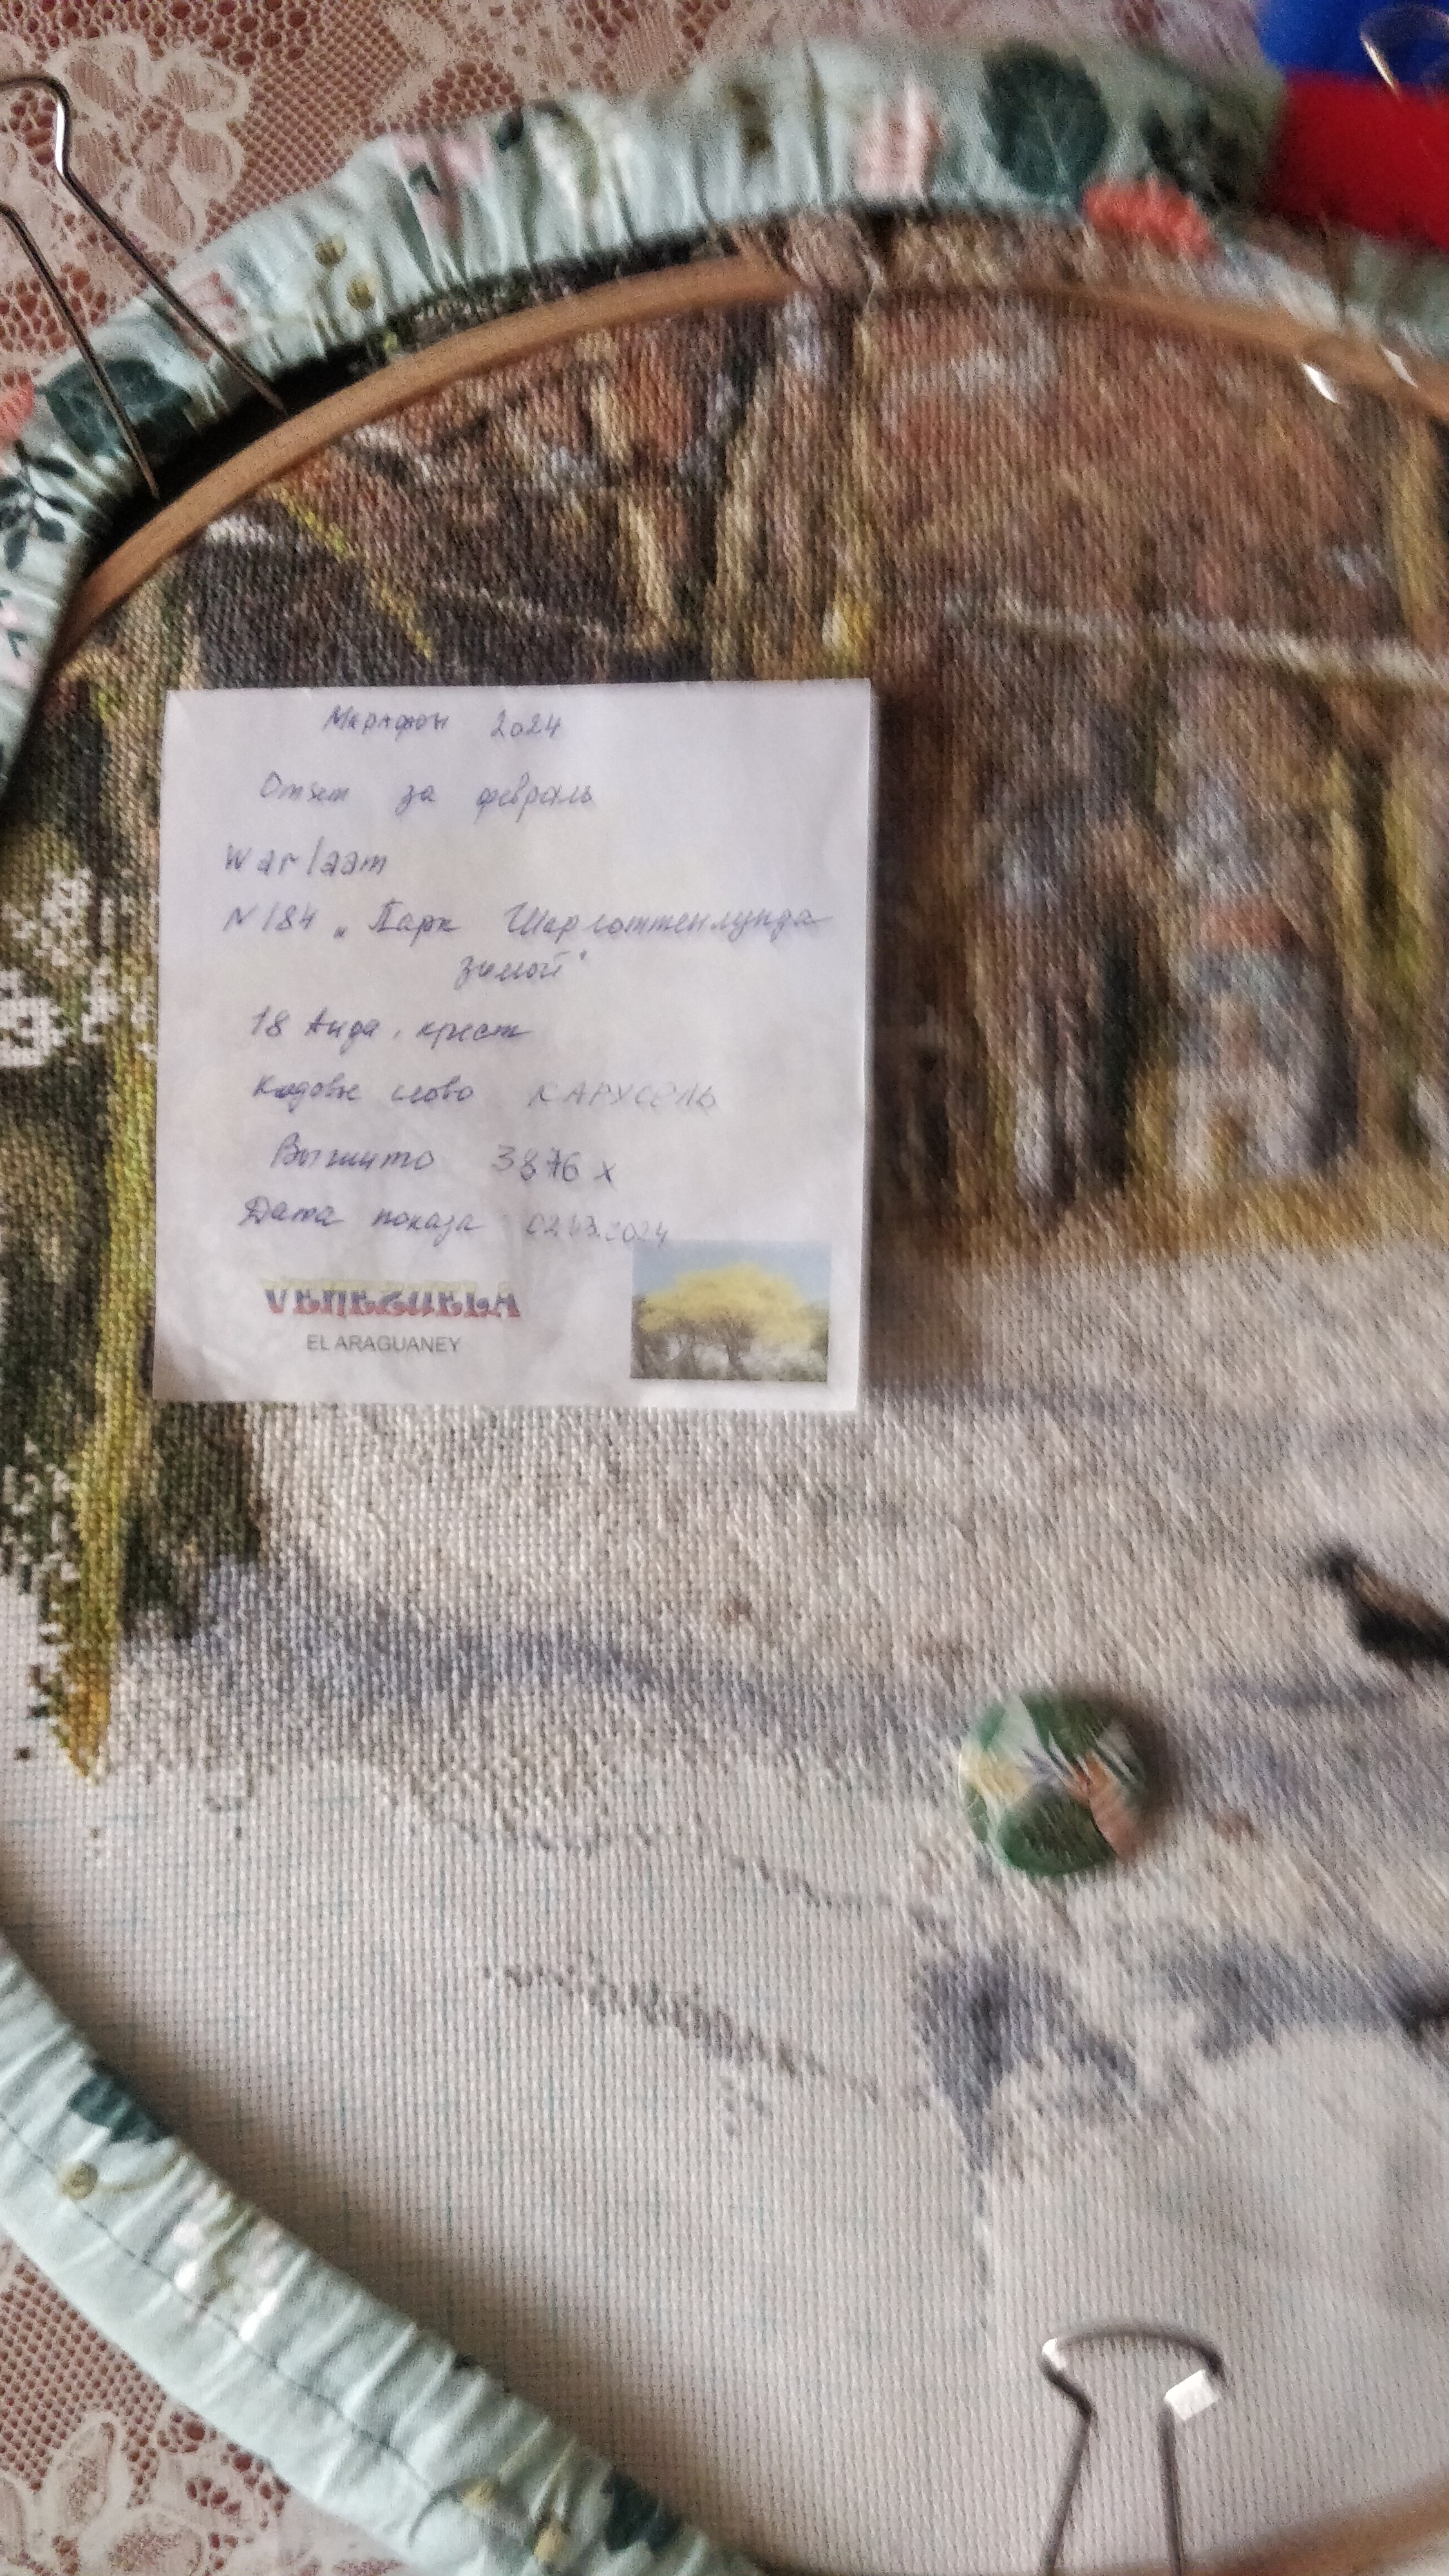 Марафон 2024
Отчет за февраль
Warlaam
N 184 „Парк Шарлоттенлунда
зимой"
18 Аида. крест
Кодовое слово КАРУСЕЛЬ
Вышито 3876 x
Дата показа 02.03.2024
VENEZUELA
EL ARAGUANEY